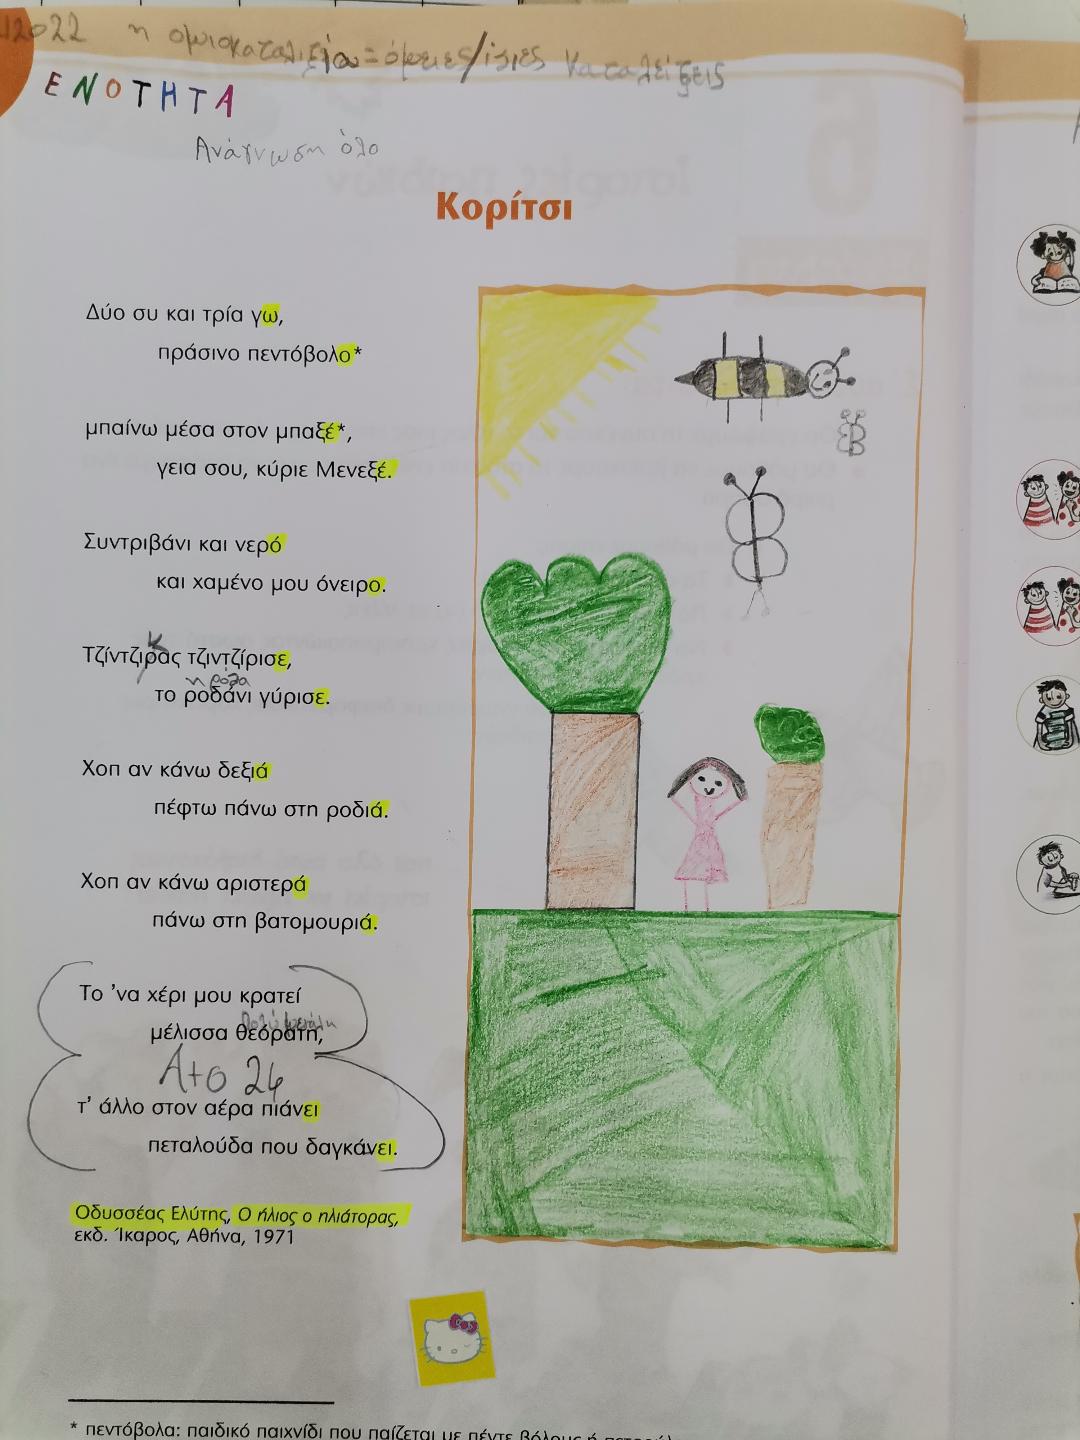 12022 η ομιοκαταλιξία = όμειες/ίδιες καταλείξεις
ΕΝΟΤΗΤΑ
Ανάγνωση όλο
Κορίτσι
Δύο συ και τρία γω,
πράσινο πεντόβολο*
μπαίνω μέσα στον μπαξέ*,
γεια σου, κύριε Μενεξέ.
Συντριβάνι και νερό
και χαμένο μου όνειρο.
κ
Τζίντζιρας τζιντζίρισε,
η ρόδα
το ροδάνι γύρισε.
Χοπ αν κάνω δεξιά
πέφτω πάνω στη ροδιά.
Χοπ αν κάνω αριστερά
πάνω στη βατομουριά.
Το ’να χέρι μου κρατεί
πολύ μεγάλη
μέλισσα θεόρατη,
Α+Ο 24
τ’ άλλο στον αέρα πιάνει
πεταλούδα που δαγκάνει.
Οδυσσέας Ελύτης, Ο ήλιος ο ηλιάτορας,
εκδ. Ίκαρος, Αθήνα, 1971
* πεντόβολα: παιδικό παιχνίδι που παίζεται με πέντε βόλους ή